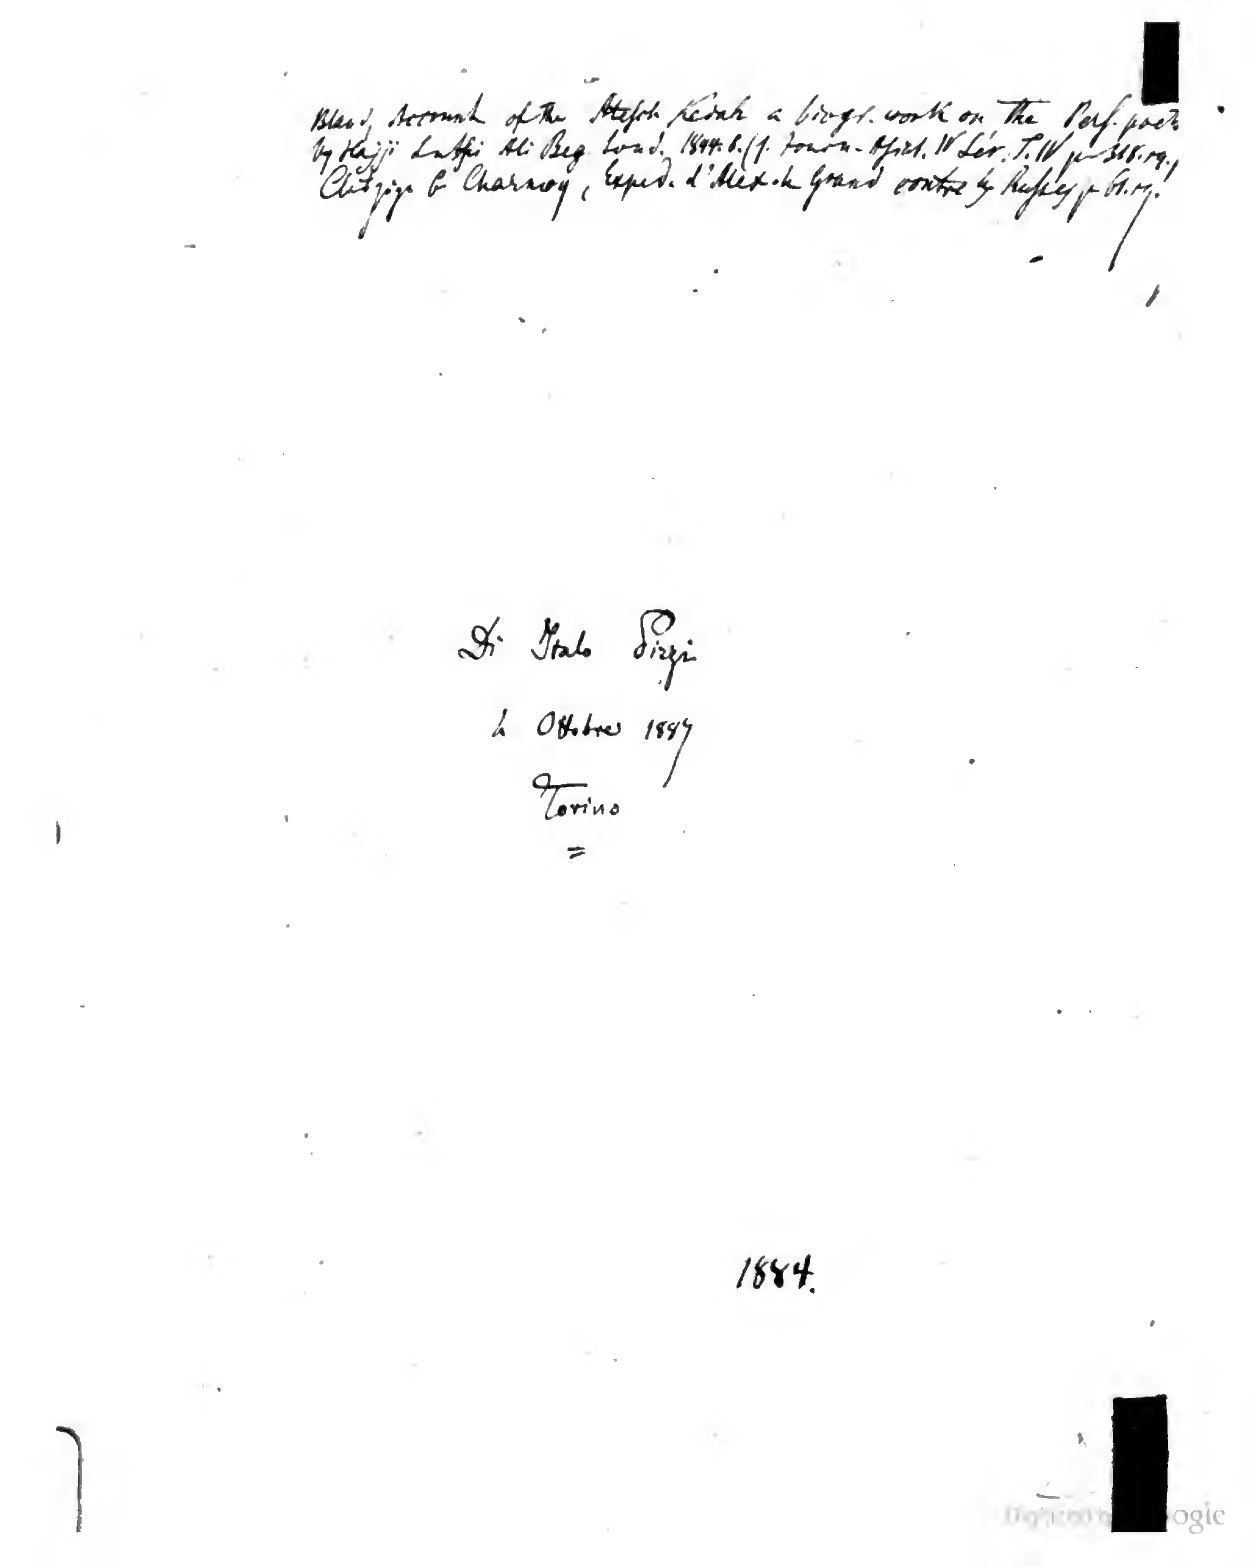 Bland, Account of the Atesch Kedah a biogr. work on the Pers. poets
by Hajji Lutfi Ali Beg Lond. 1844. 8. (f. Journ. Asiat. IV Sér. T. IV p. 318. sq.,
Charmoy, Exped. d'Alex. le Grand contre les Russes p. sq.
Di Italo Pizzi
Ottobre 1887
Torino
=
1884.